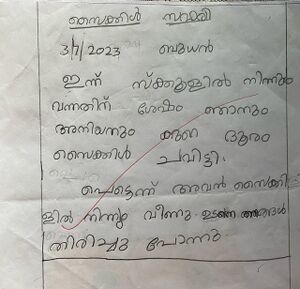 സൈക്കിൾ സവാരി
3/7/2023 ബുധൻ
ഇന്ന് സ്ക്കൂളിൽ നിന്നും
വന്നതിന് ശേഷം ഞാനും
അനിയനും കുറെ ദൂരം
സൈക്കിൾ ചവിട്ടി.
പെട്ടെന്ന് അവൻ സൈക്കി
ളിൽ നിന്നും വീണു. ഉടനെ ഞങ്ങൾ
തിരിച്ചു പോന്നു